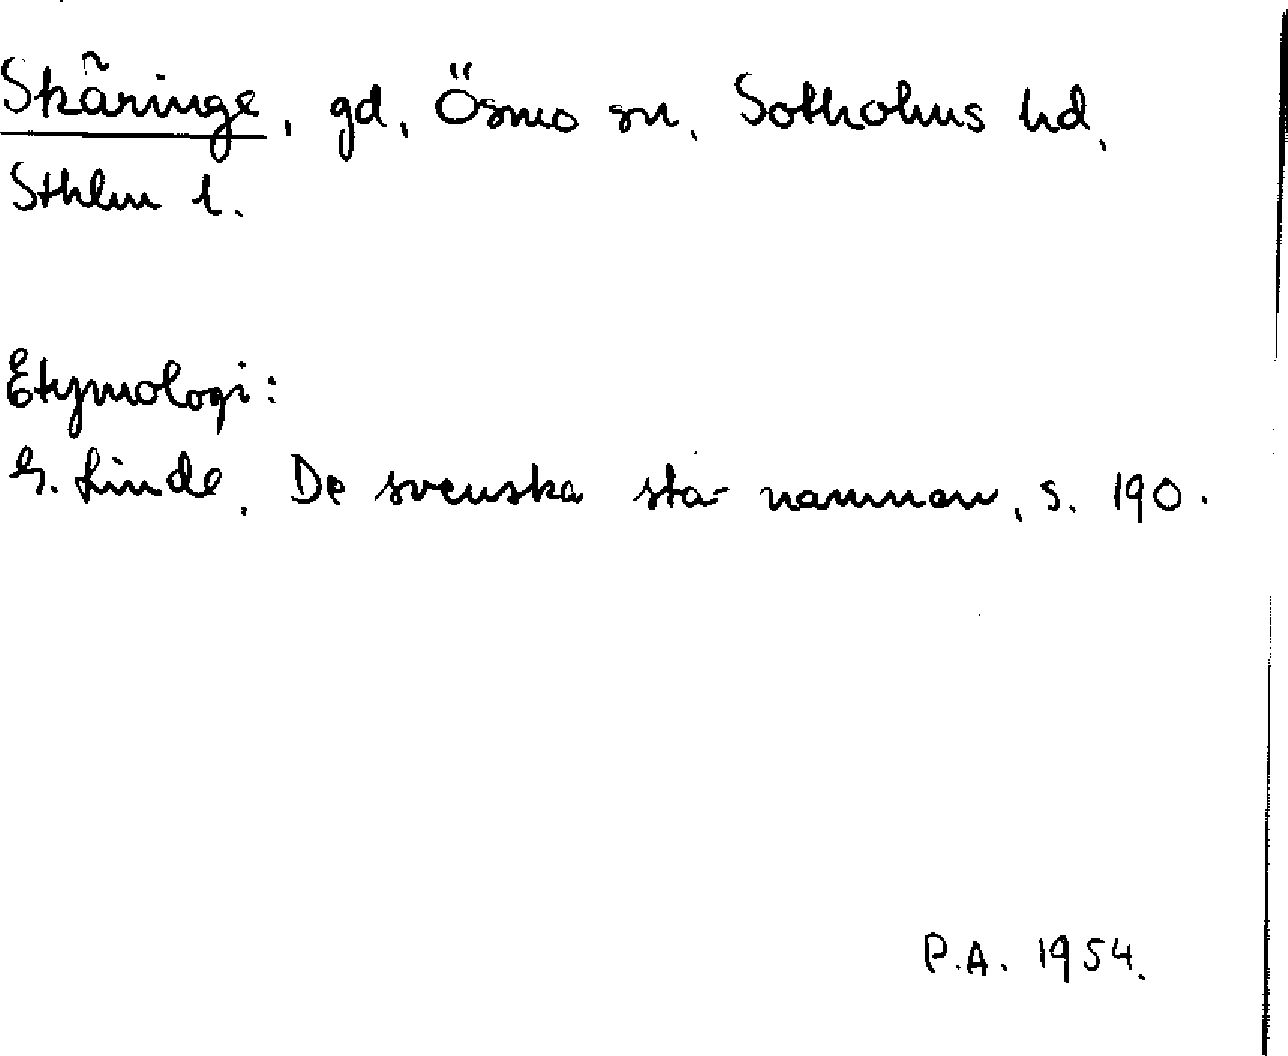 Skäringe, gd, Ösmo sn, Sotholms hd,
Sthlm l.
Etymologi:
G. Linde, De svenska sta-namnen, s. 190.
P.A. 1954.